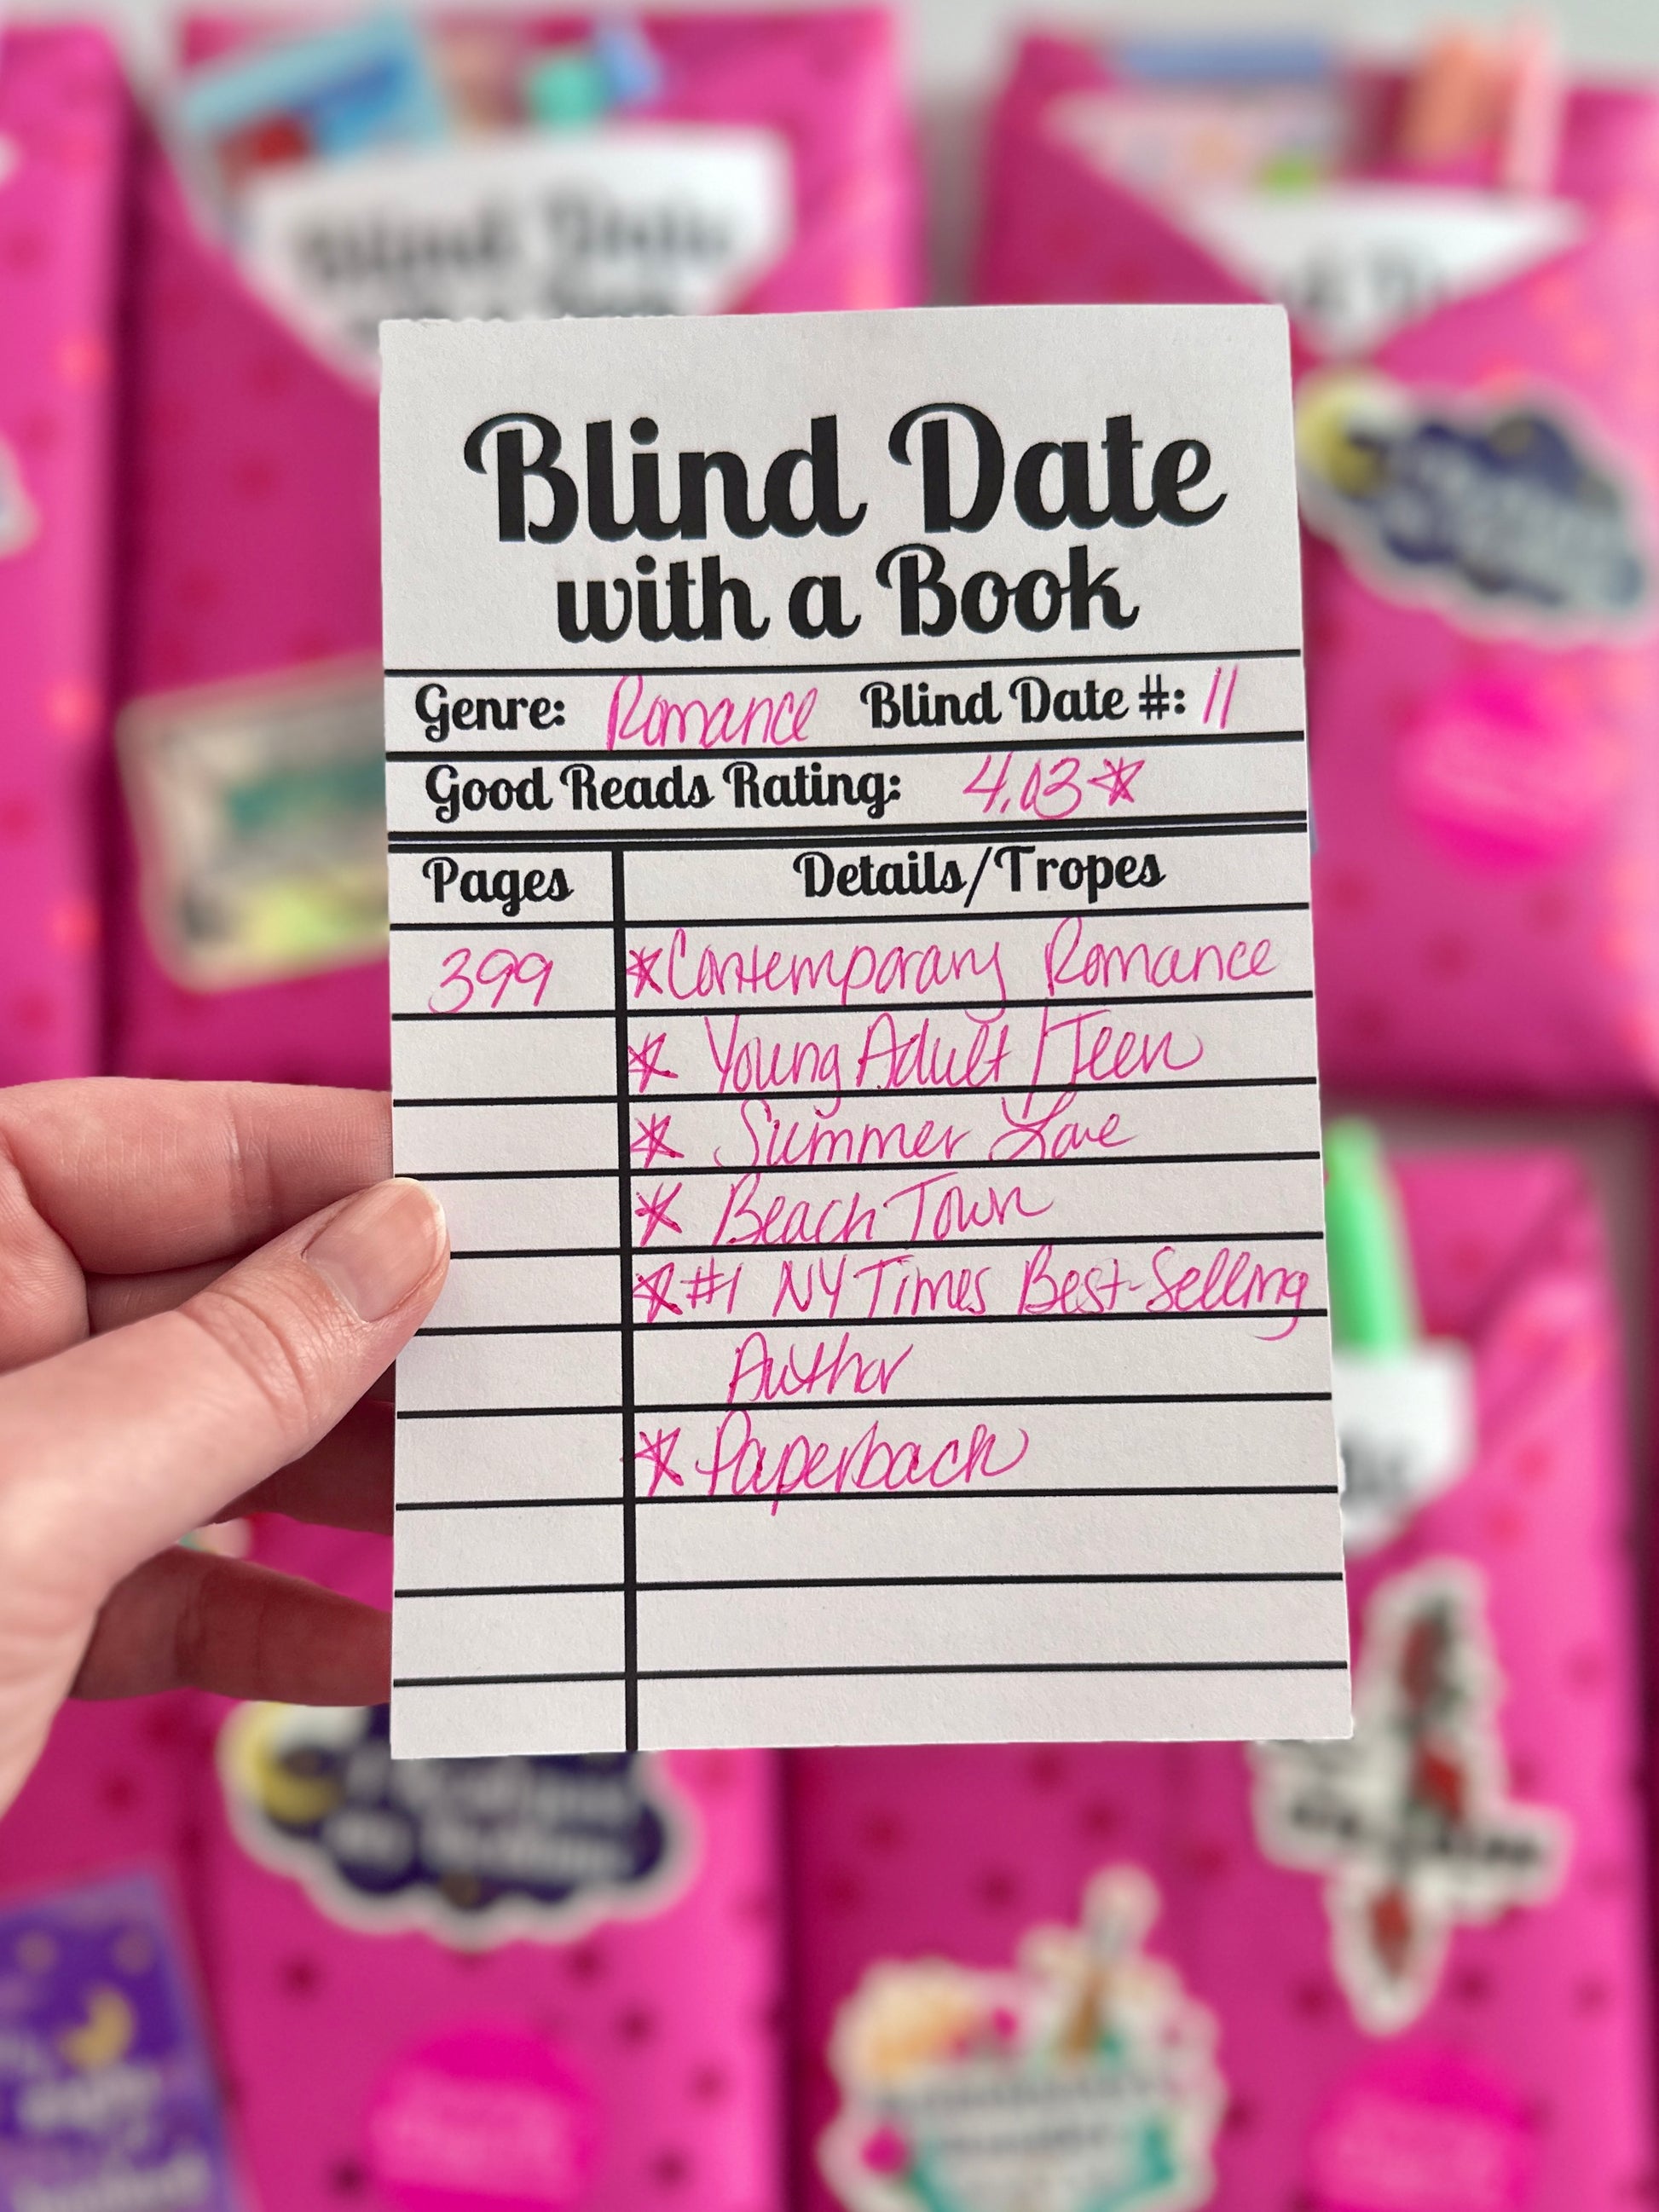 Blind Date
with a Book
Genre: Romance Blind Date #: 11
Good Reads Rating: 4.03☆
Pages Details/Tropes
399 *Contemporary Romance
* Young Adult/Teen
* Summer Love
* Beach Town
*#1 NY Times Best-Selling
Author
* Paperback
Blind Date